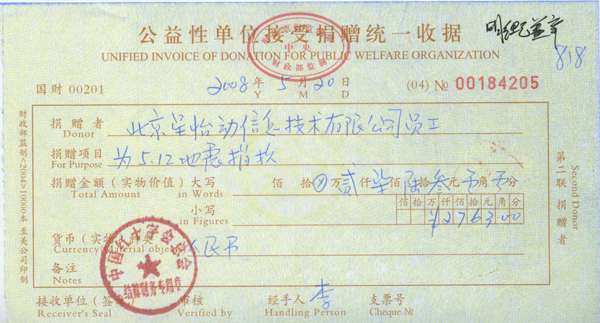 公益性单位接受捐赠统一收据
UNIFIED INVOICE OF DONATION FOR PUBLIC WELFARE ORGANIZATION
818
国财 00201
2008 年 5 月 20 日
Y M D
(04) № 00184205
捐赠者 北京星怡动信息技术有限公司员工
Donor
捐赠项目 为5.12地震捐款
For Purpose
捐赠金额(实物价值)大写 佰 拾 万 贰 仟 柒 佰 陆 拾 叁 元 角 分
Total Amount in Words
小写 佰 拾 万 仟 佰 拾 元 角 分
in Figures ¥2763.00
货币(实物)
Currency(Material objects) 人民币
备注
Notes
接收单位 审核 经手人 李 支票号
Receiver's Seal Verified by Handling Person Cheque №
财政部监制
中央
中国红十字会总会
第二联 捐赠者
Second Donor
财政部监制<2004>10000本